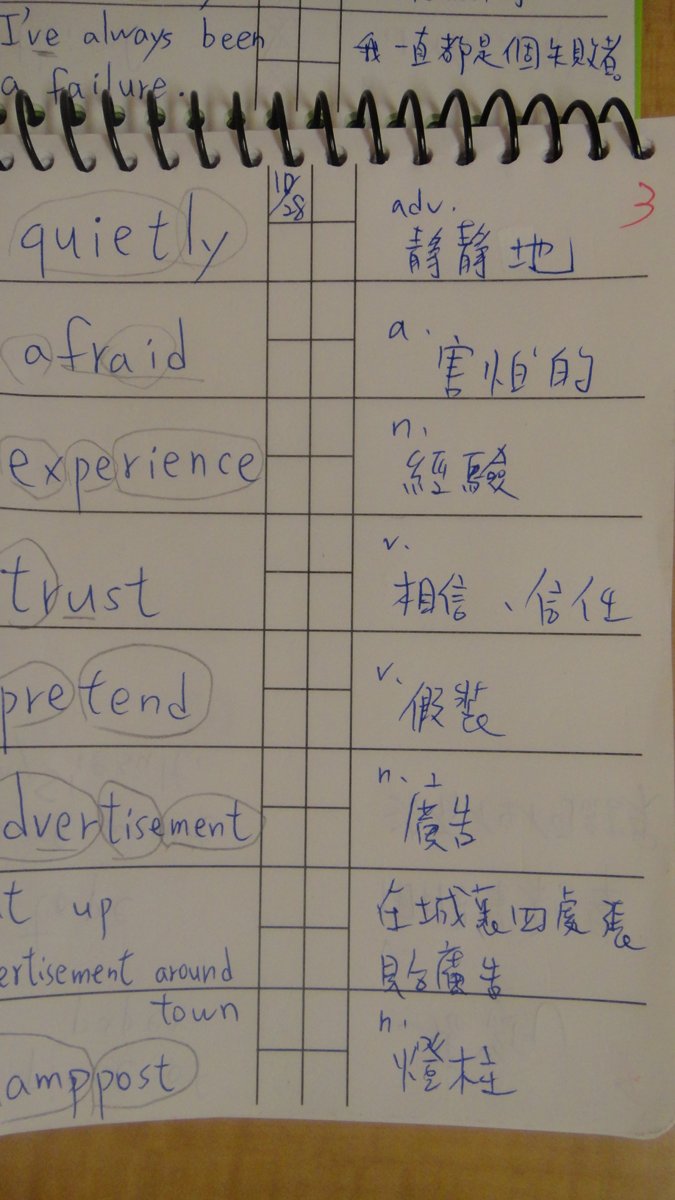 I've always been
a failure.
我一直都是個失敗者。
10/28
3
quietly
adv.
靜靜地
afraid
a.
害怕的
experience
n.
經驗
trust
v.
相信、信任
pretend
v.
假裝
dvertisement
n.
廣告
t up
ertisement around
town
在城裏四處張
貼廣告
amppost
n.
燈柱